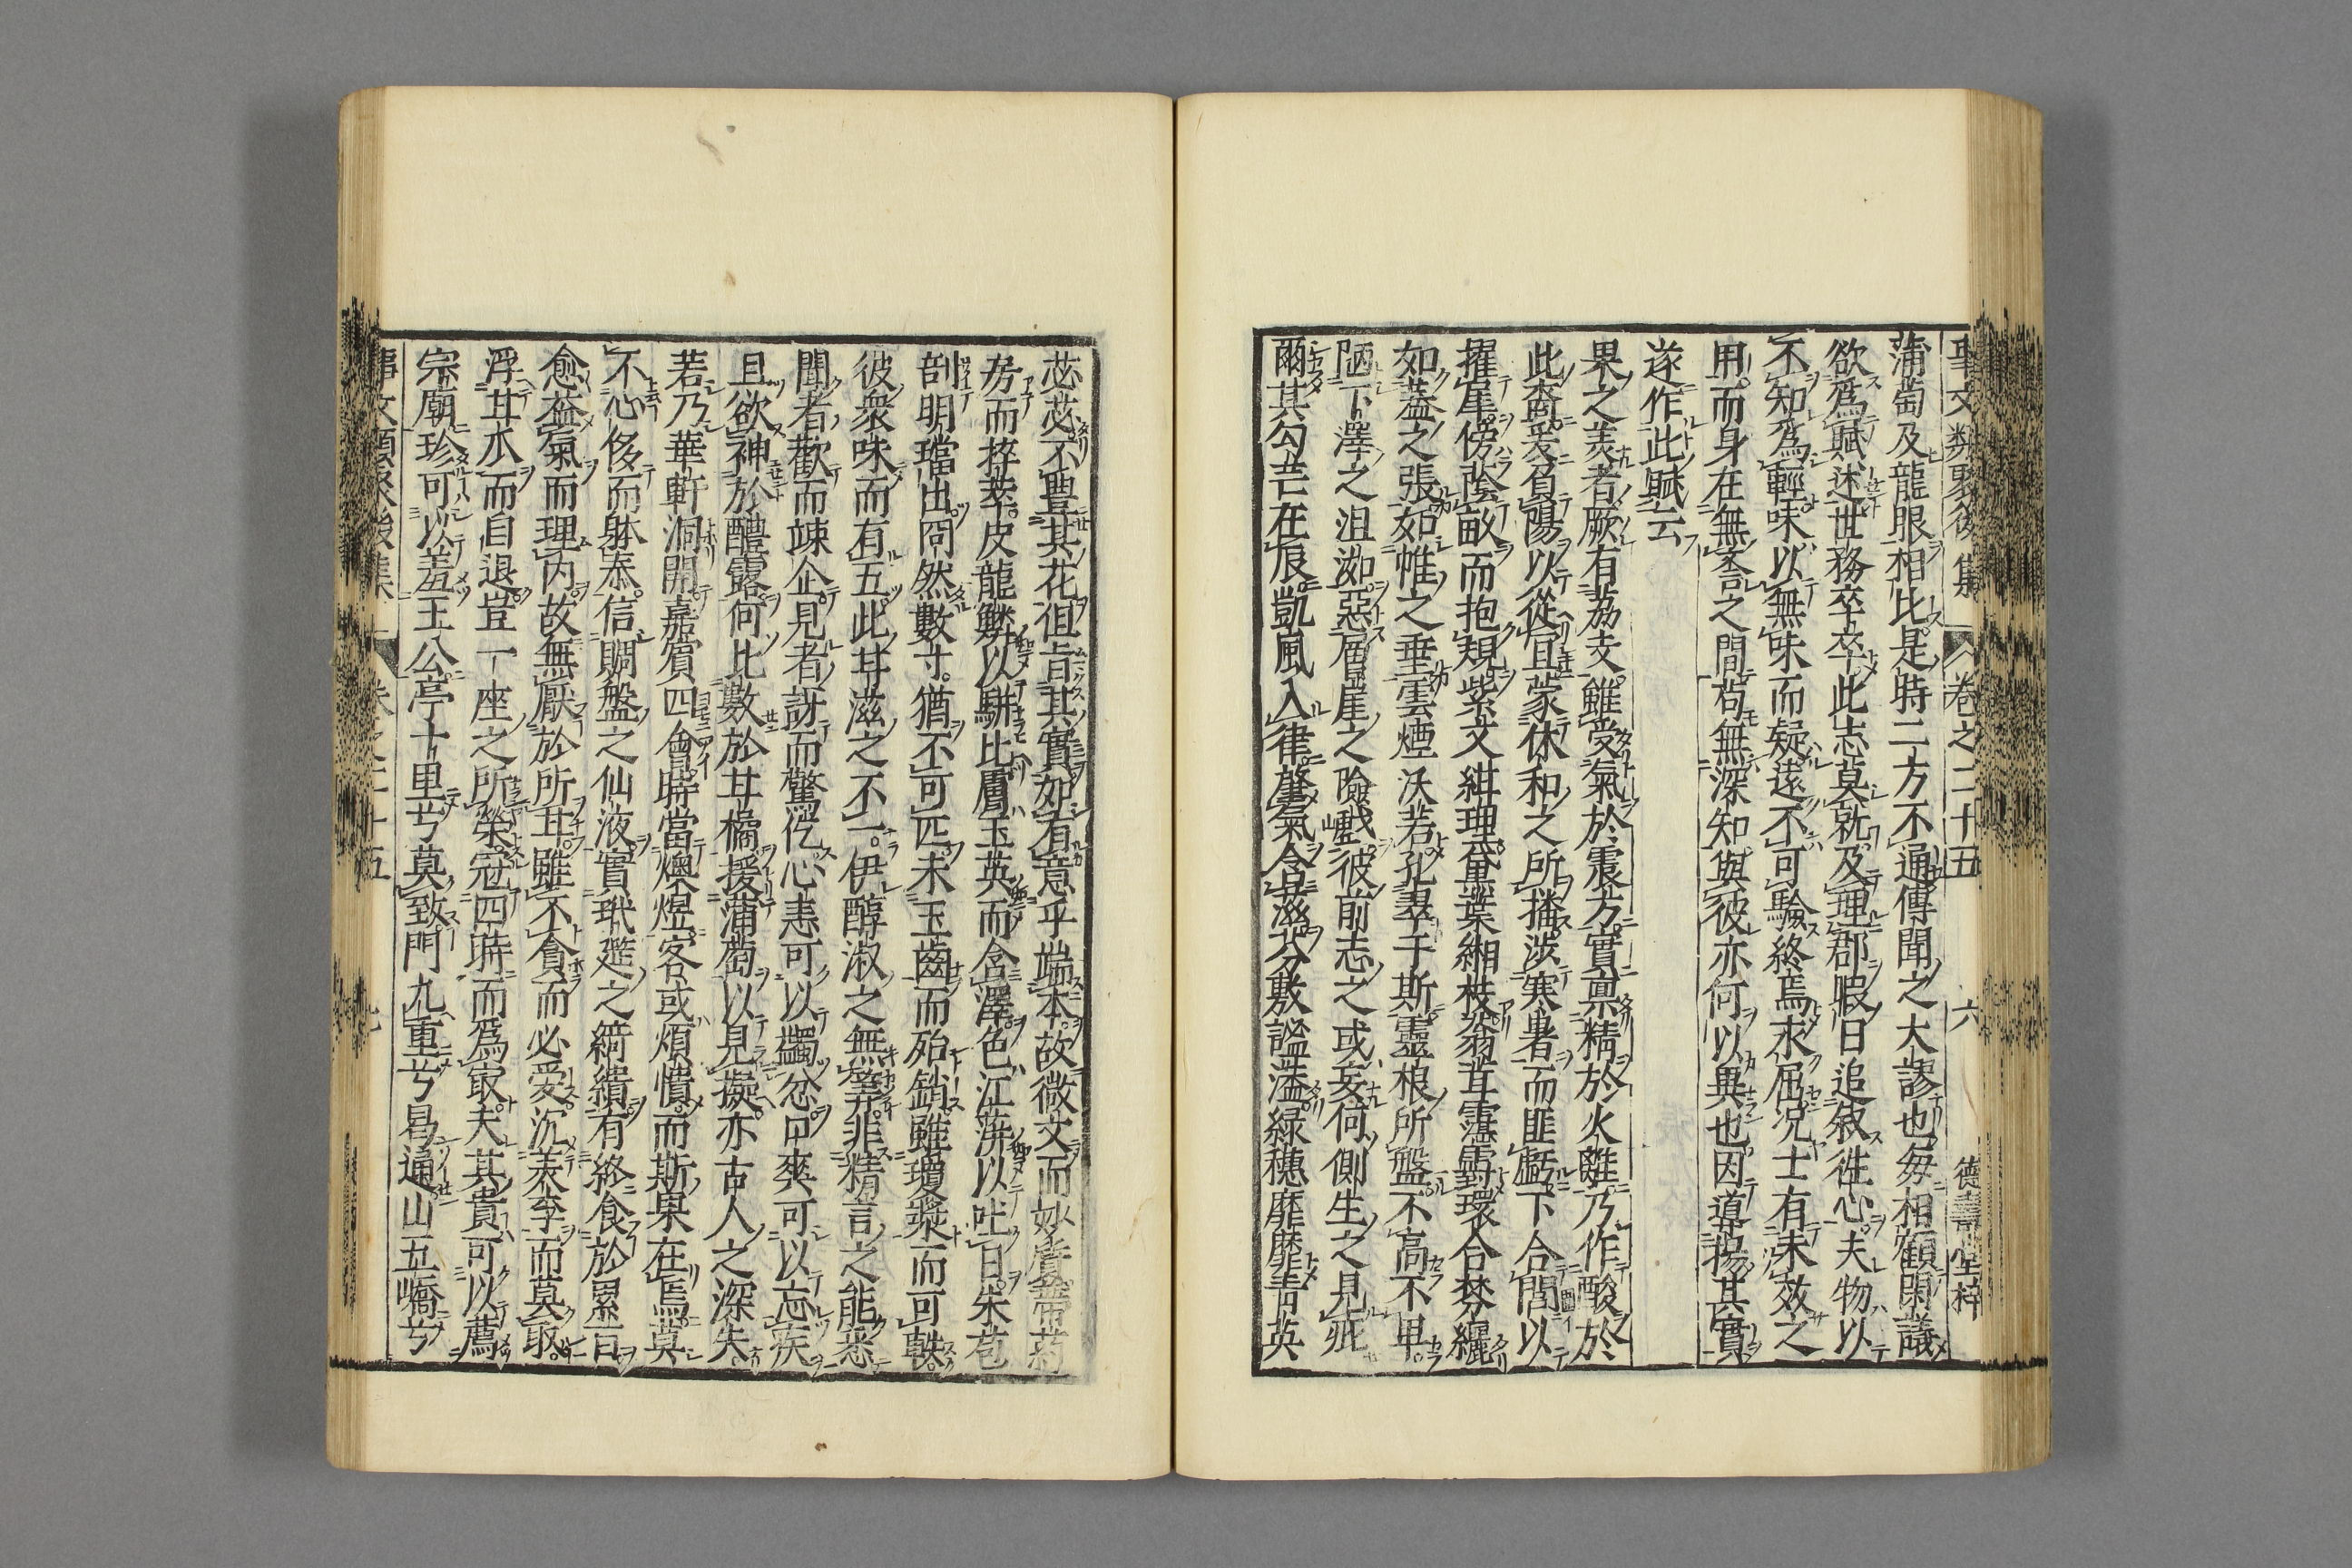 事文類聚後集　卷之二十五　六　德壽堂梓
蒲萄及龍眼相比是時二方不通傳聞之大謬也每相顧閑議
欲爲賦述世務卒卒此志莫就及理郡暇日追叙徃心夫物以
不知爲輕味以無味而疑遠不可驗終焉求屈况士有未效之
用而身在無譽之間苟無深知與彼亦何以異也因道揚其實
遂作此賦云
果之美者厥有荔支雖受氣於震方實禀精於火離乃作酸於
此裔爰負陽以從宜蒙休和之所播涉寒暑而匪虧下合圍以
擢犀傍蔭畝而抱規紫文紺理黛葉緗枝蓊茸霮䨴環合棼纚
如葢之張如帷之垂雲煙沃若孔翠于斯靈根所盤不高不卑
陋下澤之沮洳惡層崖之險巇彼前志之或妄何側生之見疵
爾其勾芒在辰凱風入律肇氣含滋芬敷謐溢緑穗靡靡青英
苾苾不豐其花但旨其實如有意乎端本故微文而妙質蔕葯
房而捽萃皮龍鱗以駢比膚玉英而含澤色江萍以吐日朱苞
剖明璫出冏然數寸猶不可匹未玉齒而殆銷雖瓊漿而可軼
彼衆味而有五此甘滋之不一伊醇淑之無筭非精言之能悉
聞者歡而竦企見者訝而驚仡心恚可以蠲忿口爽可以忘疾
且欲神於醴露何比數於甘橘援蒲萄以見擬亦古人之深失
若乃華軒洞開嘉賓四會時當燠煜客或煩憒而斯果在焉莫
不心侈而躰泰信雕盤之仙液實玳筵之綺繢有終食於累百
愈益氣而理内故無厭於所甘雖不貪而必愛沉美李而莫取
浮甘瓜而自退豈一座之所榮冠四時而爲最夫其貴可以薦
宗廟珍可以羞王公亭十里兮莫致門九重兮曷通山五嶠兮
事文類聚後集　卷之二十五　七